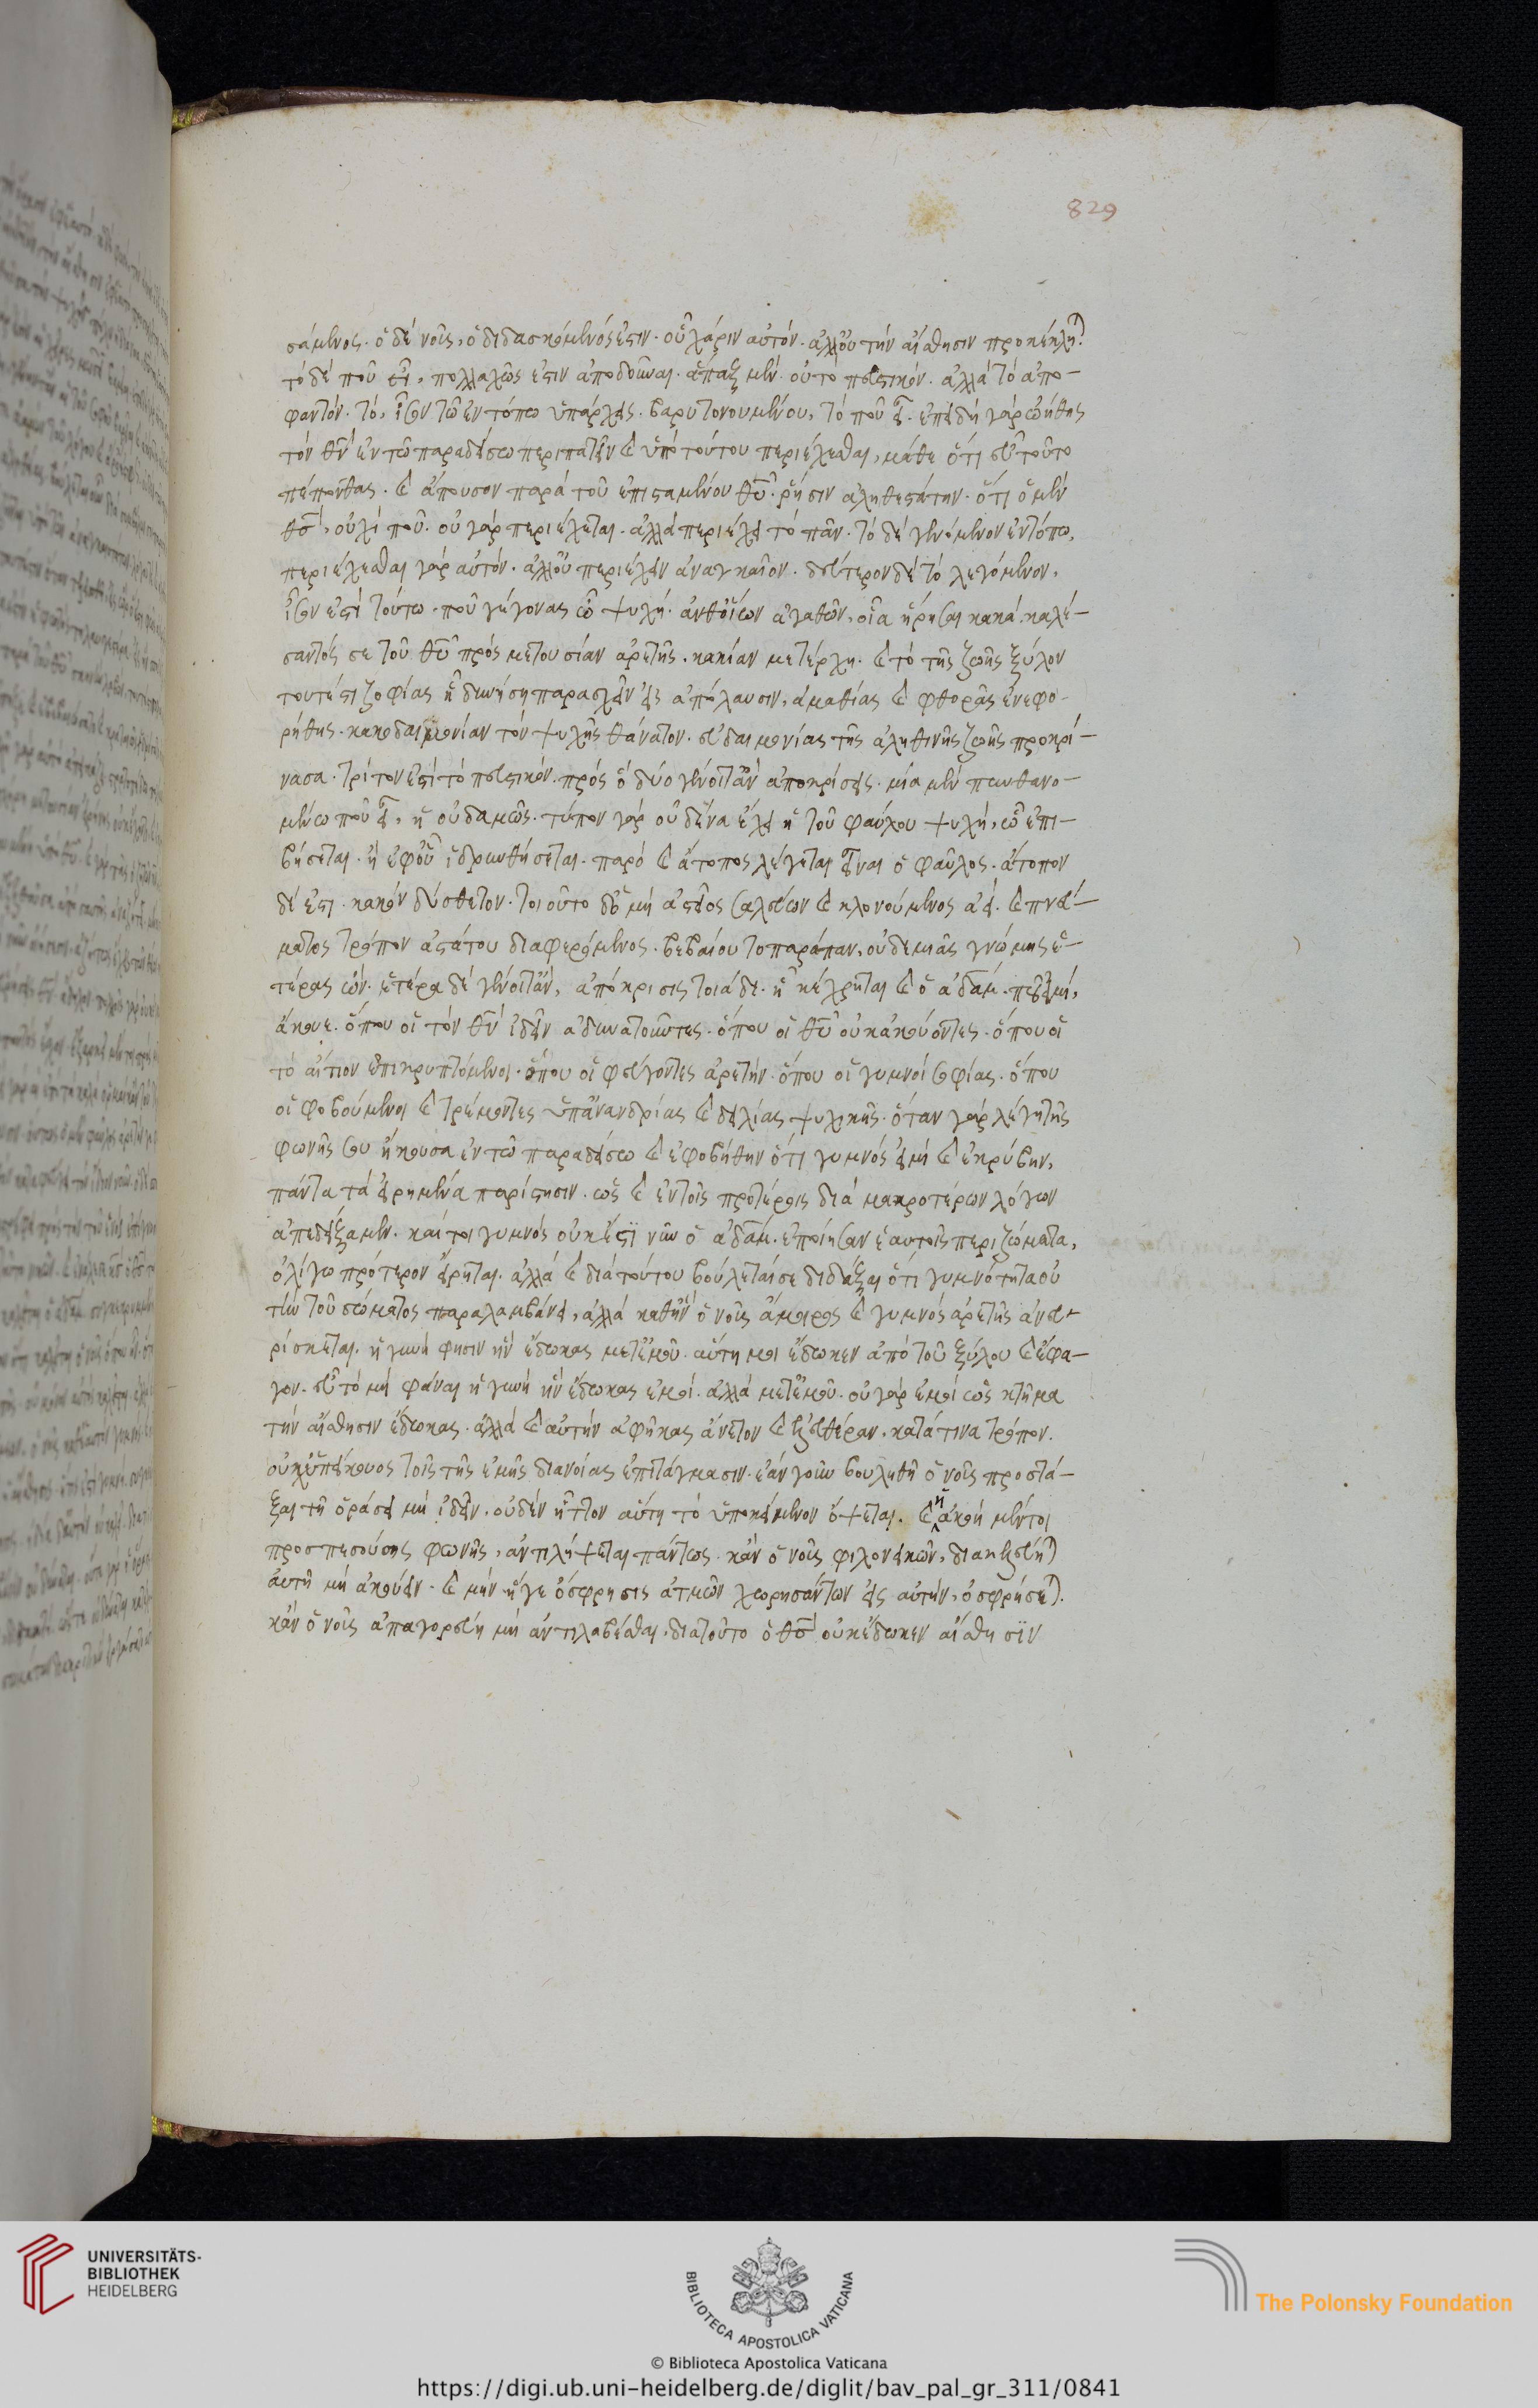 829
σάμενος· ὁ δὲ νοῦς, ὁ διδασκόμενός ἐστιν· οὗ χάριν αὐτὸν· ἀλλ' οὐ τὴν αἴσθησιν προκέκληται
τὸ δὲ ποῦ εἶ, πολλαχῶς ἐστὶν ἀποδοῦναι· ἅπαξ μὲν οὐ τὸ πευστικὸν· ἀλλὰ τὸ ἀπο-
φαντὸν· τὸ, ἴσον τῷ ἐν τόπῳ ὑπάρχεις· βαρυτονουμένου, τὸ ποῦ εἶ· ἐπειδὴ γὰρ ᾠήθης
τὸν θν ἐν τῷ παραδείσῳ περιπατεῖν καὶ ὑπὸ τούτου περιέχεσθαι, μάθε ὅτι εὖ τοῦτο
πέπονθας· καὶ ἄκουσον παρὰ τοῦ ἐπισταμένου θυ ῥῆσιν ἀληθεστάτην· ὅτι ὁ μὲν
θς, οὐχί που· οὐ γὰρ περιέχεται· ἀλλὰ περιέχει τὸ πᾶν· τὸ δὲ γενόμενον ἐν τόπῳ,
περιέχεσθαι γὰρ αὐτὸν· ἀλλ' οὐ περιέχειν ἀναγκαῖον· δεύτερον δὲ τὸ λεγόμενον,
ἴσον ἐστὶ τούτῳ· ποῦ γέγονας ὦ ψυχή· ἀνθ' οἵων ἀγαθῶν, οἷα ᾕρησαι κακά· καλέ-
σαντός σε τοῦ θυ πρὸς μετουσίαν ἀρετῆς, κακίαν μετέρχῃ· καὶ τὸ τῆς ζωῆς ξύλον
τουτέστι σοφίας ᾗ δυνήσῃ παρασχεῖν εἰς ἀπόλαυσιν, ἀμαθίας καὶ φθορᾶς ἐνεφο-
ρήθης· κακοδαιμονίαν τὸν ψυχῆς θάνατον· εὐδαιμονίας τῆς ἀληθινῆς ζωῆς προκρί-
νασα· τρίτον ἐστὶ τὸ πευστικὸν· πρὸς ὃ δύο γένοιτ' ἂν ἀποκρίσεις· μία μὲν πυνθανο-
μένῳ ποῦ εἶ, ἡ οὐδαμῶς· τόπον γὰρ οὐδένα ἔχει ἡ τοῦ φαύλου ψυχὴ, ᾧ ἐπι-
βήσεται· ἢ ἐφ' οὗ ἱδρυνθήσεται· παρὸ καὶ ἄτοπος λέγεται εἶναι ὁ φαῦλος· ἄτοπον
δέ ἐστι κακὸν δύσθετον· τοιοῦτο δ' ὁ μὴ ἀστεῖος σαλεύων καὶ κλονούμενος ἀεί· καὶ πνεύ-
ματος τρόπον ἀστάτου διαφερόμενος· βεβαίου τοπαράπαν, οὐδεμιᾶς γνώμης ἑ-
ταίρος ὤν· ἑτέρα δὲ γένοιτ' ἂν, ἀπόκρισις τοιάδε· ᾗ κέχρηται καὶ ὁ ἀδάμ· ποῦ εἰμὶ,
ἄκουε· ὅπου οἱ τὸν θν ἰδεῖν ἀδυνατοῦντες· ὅπου οἱ θυ οὐκ ἀκούοντες· ὅπου οἱ
τὸ αἴτιον ἐπικρυπτόμενοι· ὅπου οἱ φεύγοντες ἀρετήν· ὅπου οἱ γυμνοὶ σοφίας· ὅπου
οἱ φοβούμενοι καὶ τρέμοντες ὑπ' ἀνανδρίας καὶ δειλίας ψυχικῆς· ὅταν γὰρ λέγῃ τῆς
φωνῆς σου ἤκουσα ἐν τῷ παραδείσῳ καὶ ἐφοβήθην ὅτι γυμνός εἰμι καὶ ἐκρύβην,
πάντα τὰ εἰρημένα παρίστησιν· ὡς καὶ ἐν τοῖς προτέροις διὰ μακροτέρων λόγων
ἀπεδείξαμεν· καίτοι γυμνὸς οὐκ ἔστϊ νῦν ὁ ἀδάμ· ἐποίησαν ἑαυτοῖς περιζώματα,
ὀλίγῳ πρότερον εἴρηται· ἀλλὰ καὶ διὰ τούτου βούλεταί σε διδάξαι ὅτι γυμνότητα οὐ
τὴν τοῦ σώματος παραλαμβάνει, ἀλλὰ καθ' ἣν ὁ νοῦς ἄμοιρος καὶ γυμνὸς ἀρετῆς ἀνευ-
ρίσκεται· ἡ γυνή φησιν ἣν ἔδωκας μετ' ἐμοῦ· αὕτη μοι ἔδωκεν ἀπὸ τοῦ ξύλου καὶ ἔφα-
γον· εὖ τὸ μὴ φάναι ἡ γυνὴ ἣν ἔδωκας ἐμοί· ἀλλὰ μετ' ἐμοῦ· οὐ γὰρ ἐμοὶ ὡς κτῆμα
τὴν αἴσθησιν ἔδωκας· ἀλλὰ καὶ αὐτὴν ἀφῆκας ἄνετον καὶ ἐλευθέραν· κατά τινα τρόπον·
οὐχ ὑπείκουσαν τοῖς τῆς ἐμῆς διανοίας ἐπιτάγμασιν· ἐὰν γοῦν βουληθῇ ὁ νοῦς προστά-
ξαι τῇ ὁράσει μὴ ἰδεῖν· οὐδὲν ἧττον αὕτη τὸ ὑποκείμενον ὄψεται· καὶ ἡ ἀκοὴ μέντοι
προσπεσούσης φωνῆς, ἀντιλήψεται πάντως· κἂν ὁ νοῦς φιλονεικῶν, διακελεύηται
αὐτῇ μὴ ἀκούειν· καὶ μὴν ἥγε ὄσφρησις ἀτμῶν χωρησάντων εἰς αὐτήν, ὀσφρήσεται.
κἂν ὁ νοῦς ἀπαγορεύῃ μὴ ἀντιλαβέσθαι· διατοῦτο ὁ θς οὐκ ἔδωκεν αἴσθησϊν
UNIVERSITÄTS-
BIBLIOTHEK
HEIDELBERG
BIBLIOTECA APOSTOLICA VATICANA
© Biblioteca Apostolica Vaticana
The Polonsky Foundation
https://digi.ub.uni-heidelberg.de/diglit/bav_pal_gr_311/0841